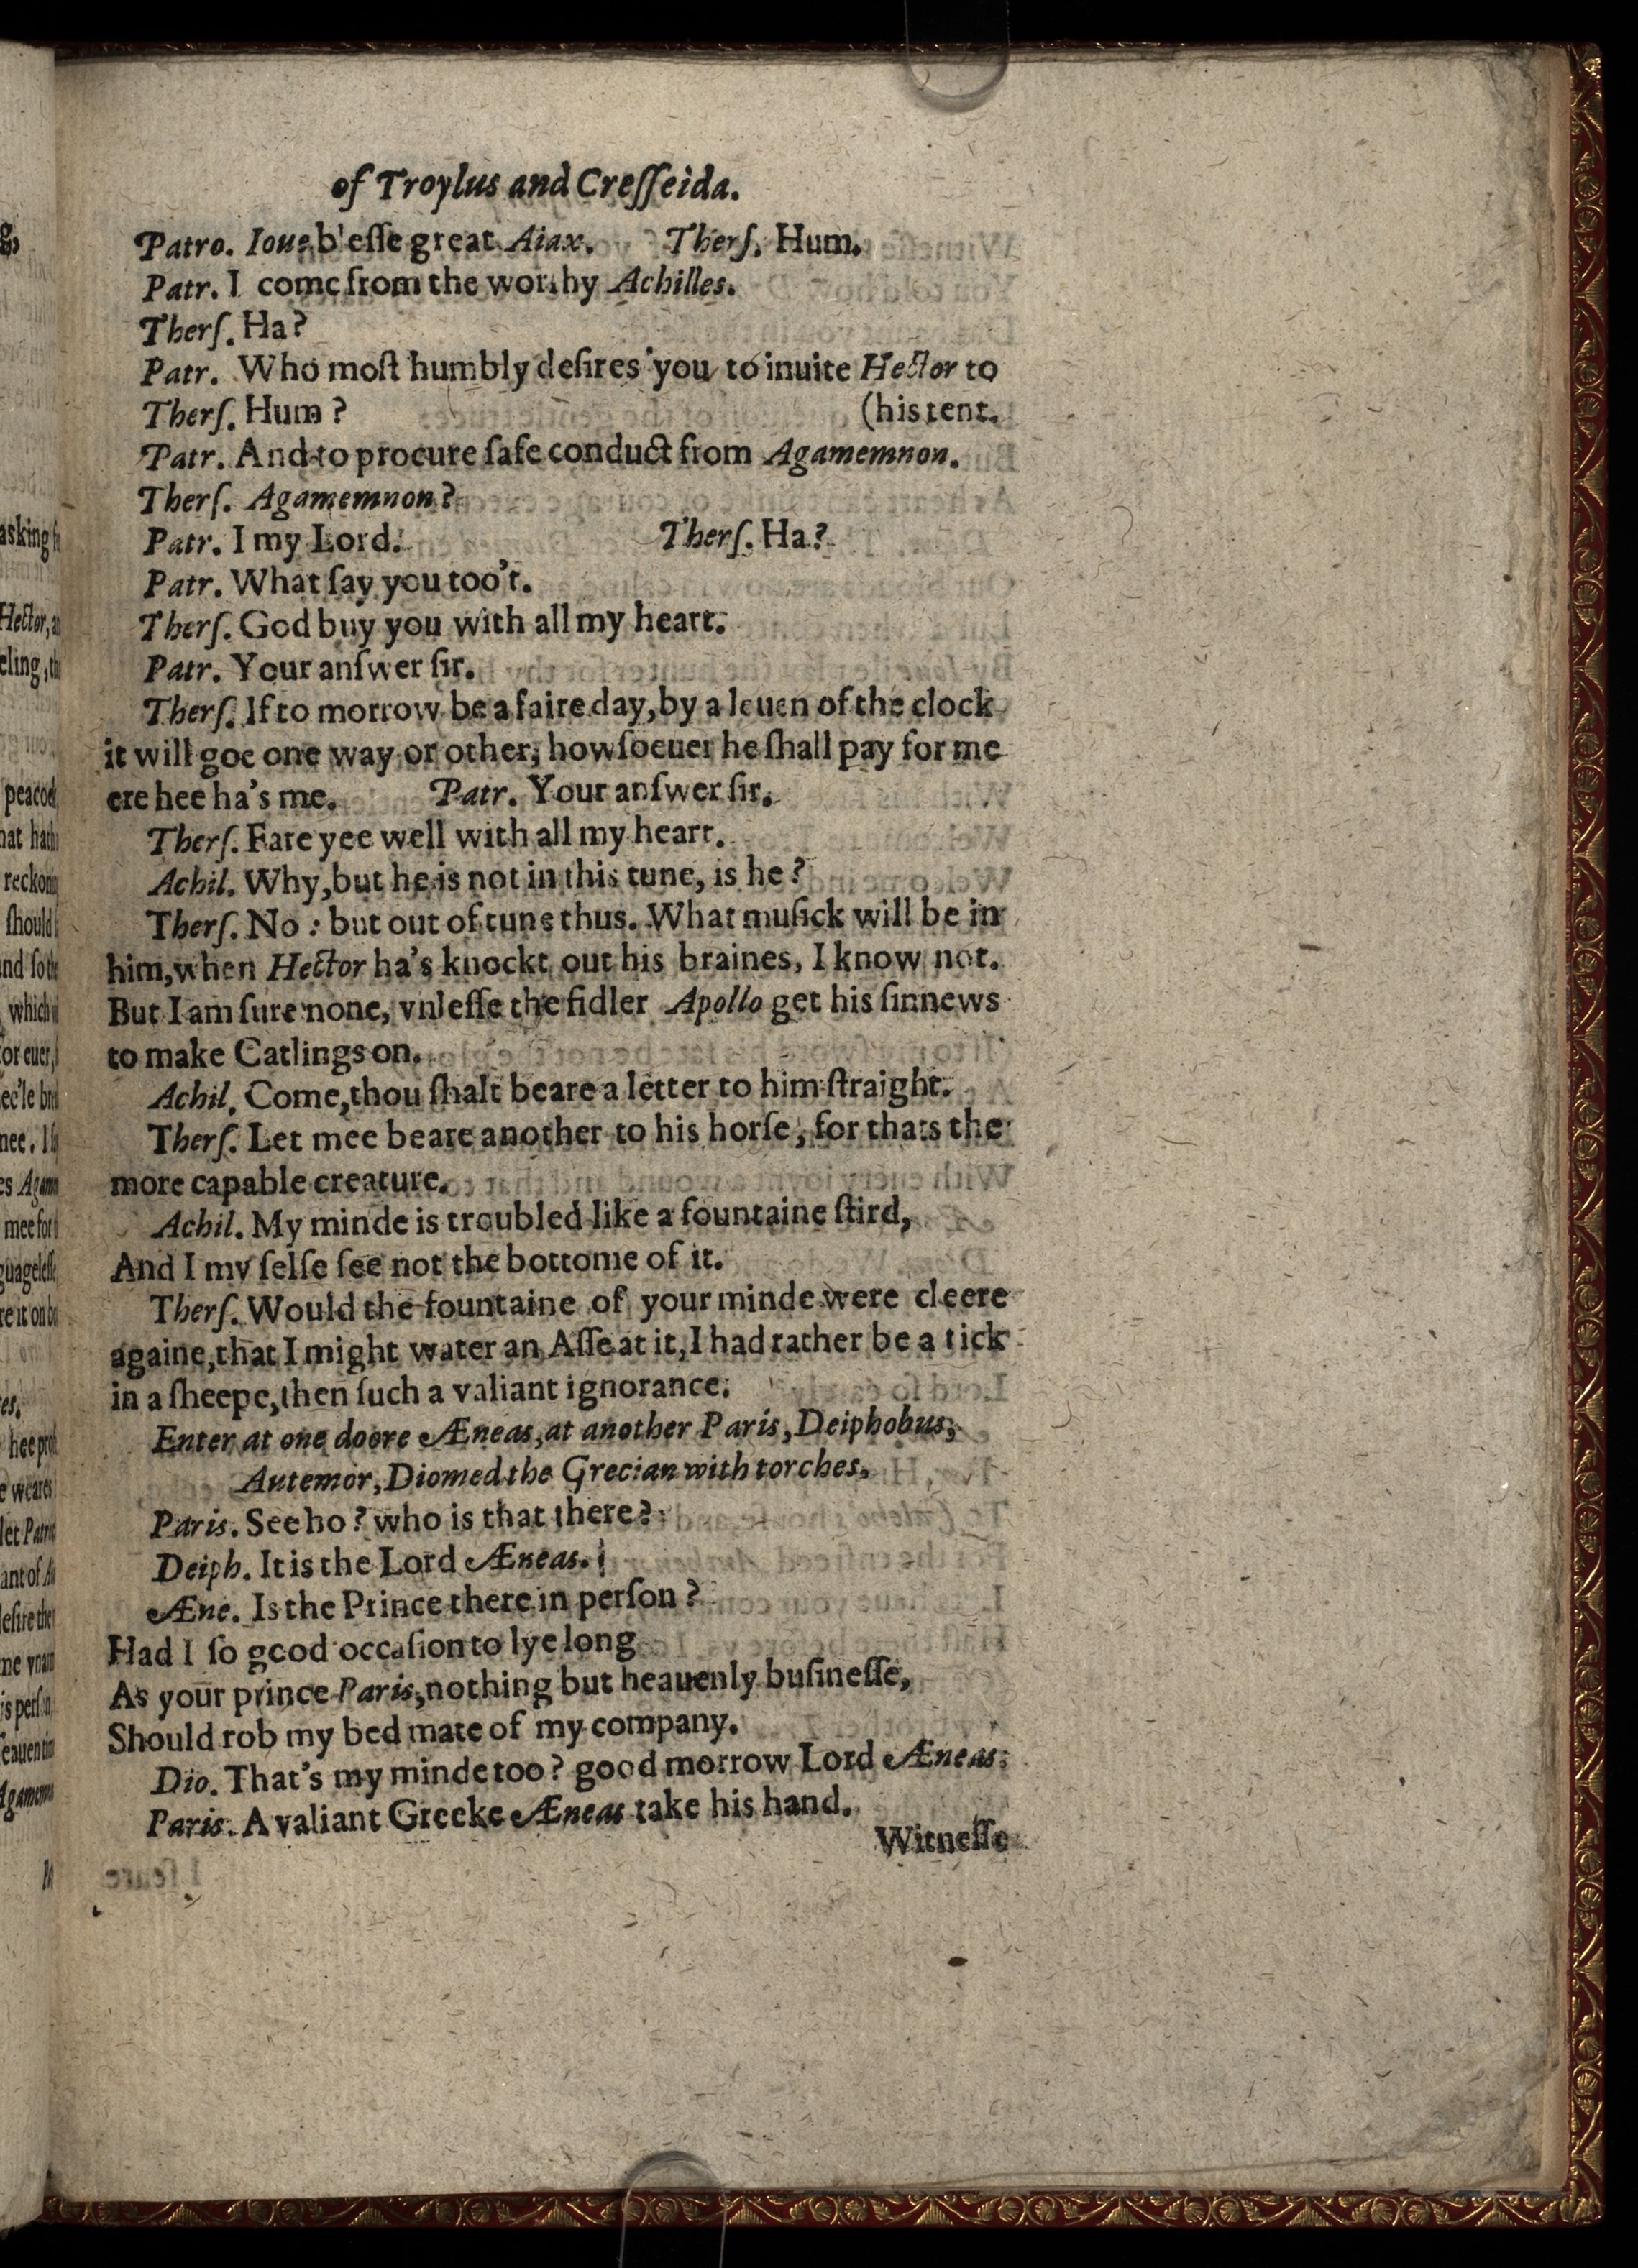 of Troylus and Creſſeida.
Patro. Ioue b'eſſe great Aiax. Therſ. Hum.
Patr. I come from the worthy Achilles.
Therſ. Ha?
Patr. Who moſt humbly deſires you to inuite Hector to
Therſ. Hum? (his tent.
Patr. And to procure ſafe conduct from Agamemnon.
Therſ. Agamemnon?
Patr. I my Lord. Therſ. Ha?
Patr. What ſay you too't.
Therſ. God buy you with all my heart.
Patr. Your anſwer ſir.
Therſ. If to morrow be a faire day, by a leuen of the clock
it will goe one way or other, howſoeuer he ſhall pay for me
ere hee ha's me. Patr. Your anſwer ſir.
Therſ. Fare yee well with all my heart.
Achil. Why, but he is not in this tune, is he?
Therſ. No: but out of tune thus. What muſick will be in
him, when Hector ha's knockt out his braines, I know not.
But I am ſure none, vnleſſe the fidler Apollo get his ſinnews
to make Catlings on.
Achil. Come, thou ſhalt beare a letter to him ſtraight.
Therſ. Let mee beare another to his horſe, for thats the
more capable creature.
Achil. My minde is troubled like a fountaine ſtird,
And I my ſelfe ſee not the bottome of it.
Therſ. Would the fountaine of your minde were cleere
againe, that I might water an Aſſe at it, I had rather be a tick
in a ſheepe, then ſuch a valiant ignorance.
Enter at one doore Æneas, at another Paris, Deiphobus,
Autemor, Diomed the Grecian with torches.
Paris. See ho? who is that there?
Deiph. It is the Lord Æneas.
Æne. Is the Prince there in perſon?
Had I ſo good occaſion to lye long
As your prince Paris, nothing but heauenly buſineſſe,
Should rob my bed mate of my company.
Dio. That's my minde too? good morrow Lord Æneas.
Paris. A valiant Greeke Æneas take his hand.
Witneſſe